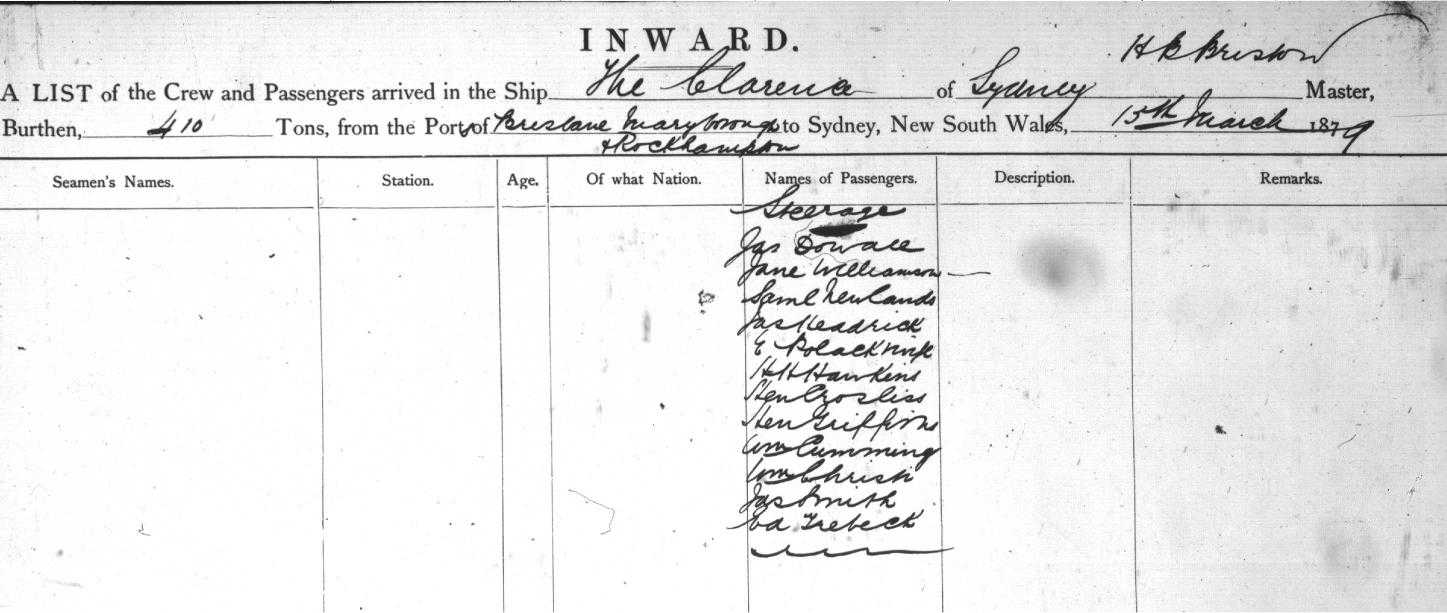 INWARD.
H B Bristow
A LIST of the Crew and Passengers arrived in the Ship The Clarence of Sydney Master,
Burthen, 410 Tons, from the Port s of Brisbane Maryborough to Sydney, New South Wales, 15th March 1879
& Rockhampton
Seamen's Names. Station. Age. Of what Nation. Names of Passengers. Description. Remarks.
Steerage
Jas Dowall
Jane Williamson
Saml Newlands
Jas Keadrick
E Polack
H H Hawkins
Hen Crosliss
Hen Griffiths
Wm Cumming
Wm Christi
Jas Smith
Ed Trebeck